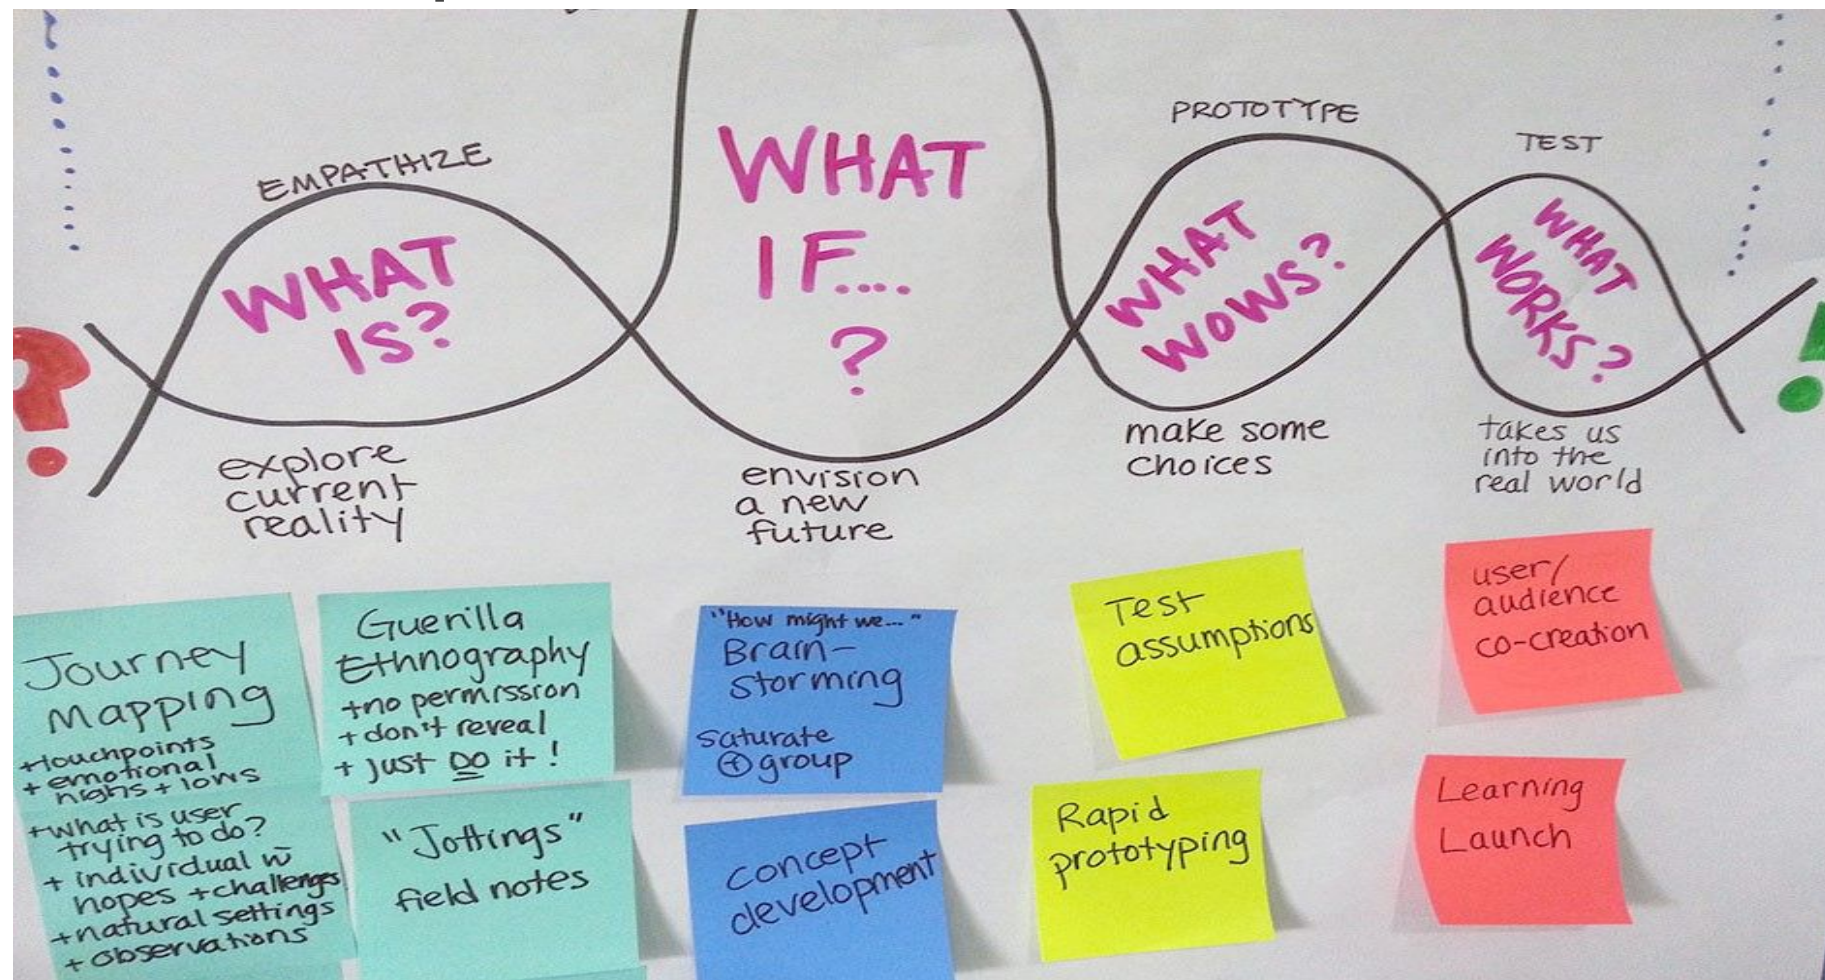 EMPATHIZE
WHAT
IS?
explore
current
reality
WHAT
IF....
?
envision
a new
future
PROTOTYPE
WHAT
WOWS?
make some
choices
TEST
WHAT
WORKS?
takes us
into the
real world
?
!
Journey
Mapping
+touchpoints
+ emotional
highs + lows
+what is user
trying to do?
+ individual w̄
hopes + challenges
+natural settings
+ observations
Guerilla
Ethnography
+no permission
+ don't reveal
+ just DO it!
"Jottings"
field notes
"How might we..."
Brain-
storming
saturate
+ group
concept
development
Test
assumptions
Rapid
prototyping
user/
audience
co-creation
Learning
Launch